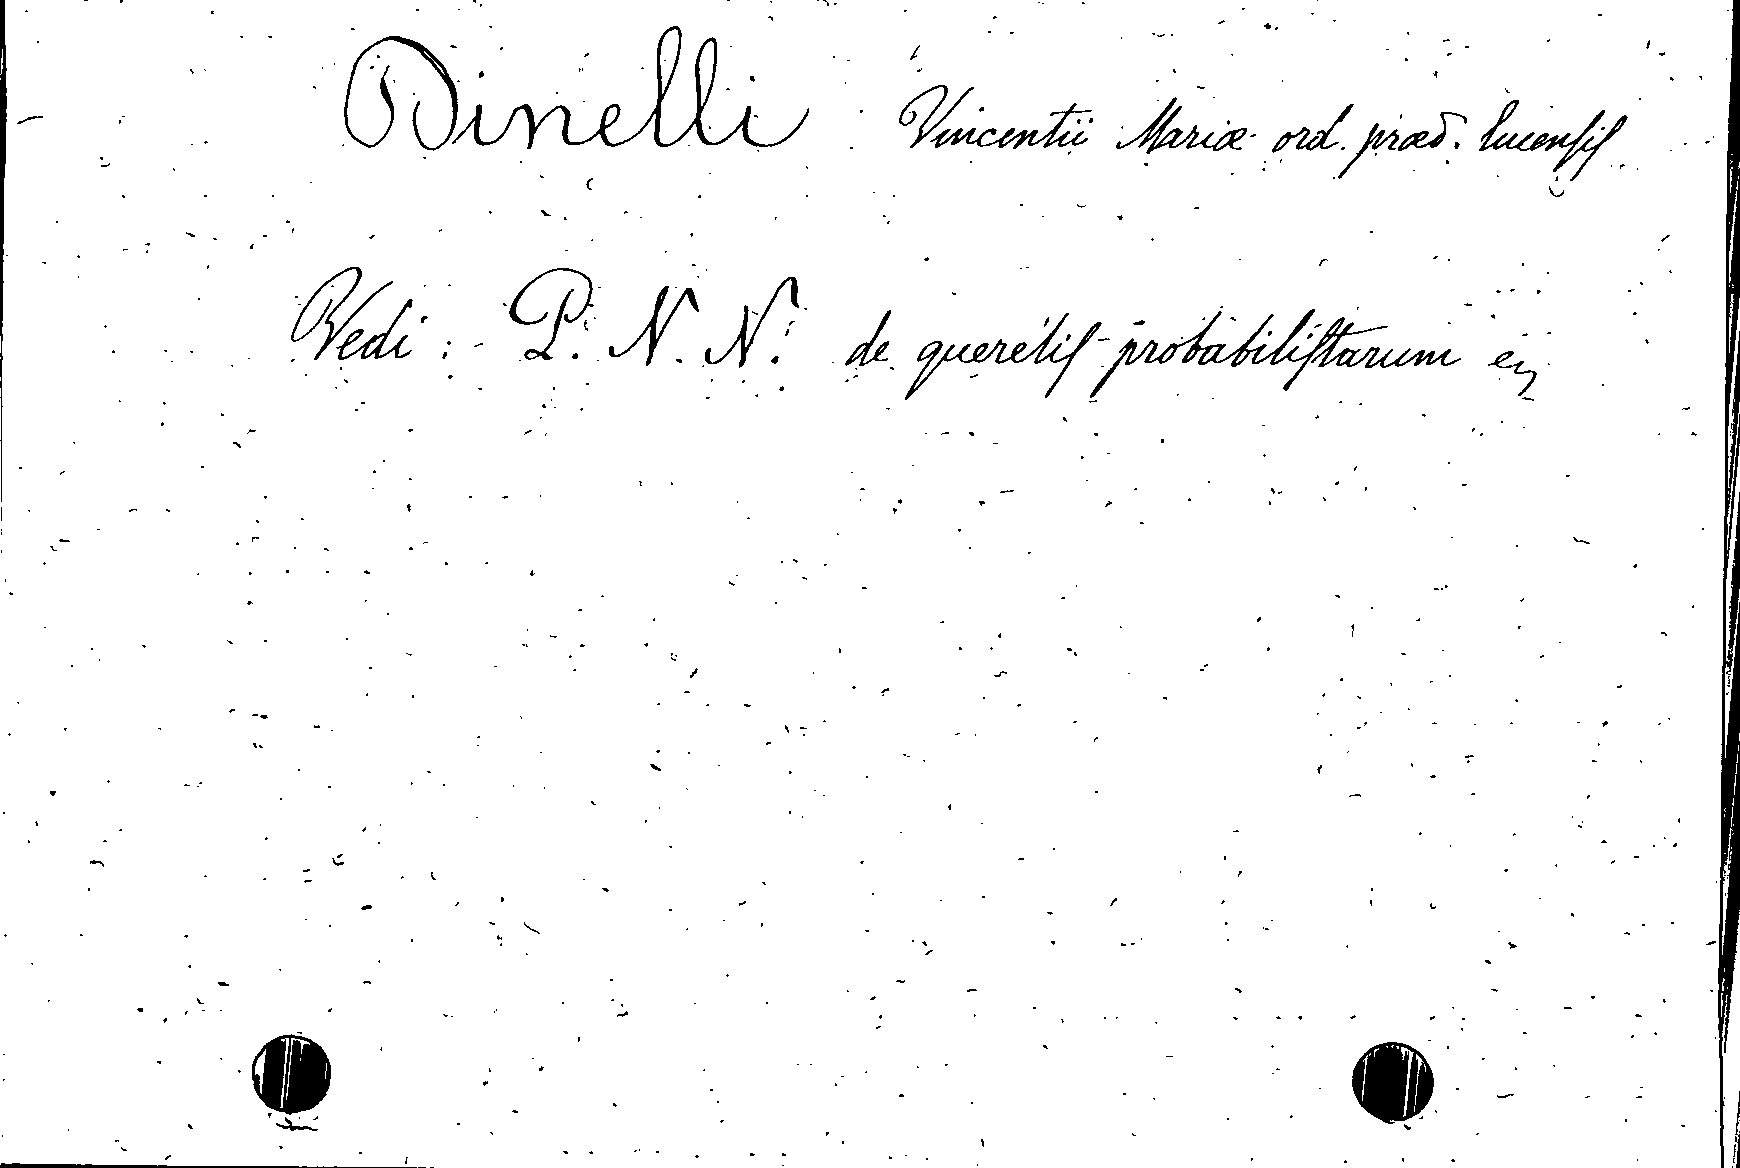 Dinelli Vincentii Mariæ ord. præd. lucensis
Vedi: P. N. N. de querelis probabilistarum